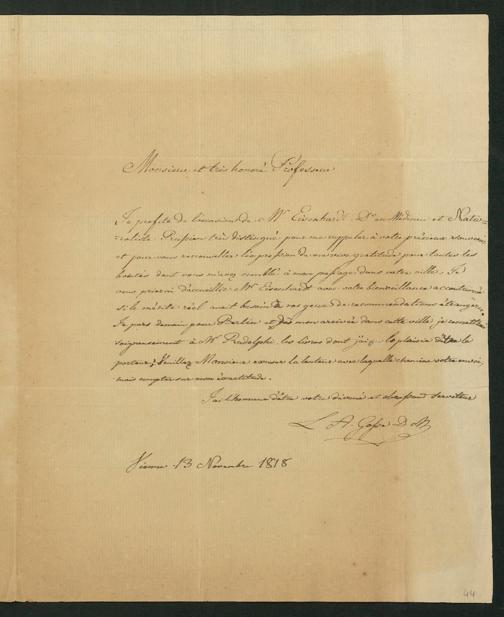 Monsieur et très honoré Professeur
Je profite de l'occasion de Mr Eisenhardt Dr en Médecine et Natu=
raliste Prussien très distingué pour me rappeler à votre précieux souvenir
et pour vous renouveller l'expression de ma vive gratitude pour toutes les
bontés dont vous m'avez comblé à mon passage dans votre ville. Je
vous prierai d'accueillir Mr Eisenhardt avec votre bienveillance accoutumée
si le mérite réel avait besoin à vos yeux de recommendations étrangères.
Je pars demain pour Berlin et dès mon arrivée dans cette ville je remettrai
soigneusement à Mr Rudolphi les livres dont j'ai le plaisir d'être le
porteur; Veuillez Monsieur excuser la lenteur avec laquelle chemine votre envoi,
mais compter sur mon exactitude.
J'ai l'honneur d'être votre dévoué et serviteur
L. A. Gosse D M
Vienne 13 Novembre 1818
44